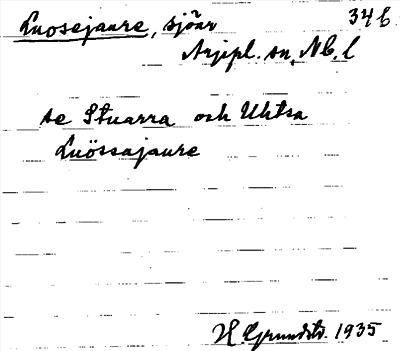 Luosejaure, sjöar 346
Arjepl. sn, Nb. l
se Stuarra och Uhtsa
Luössajaure
H Grundstr. 1935